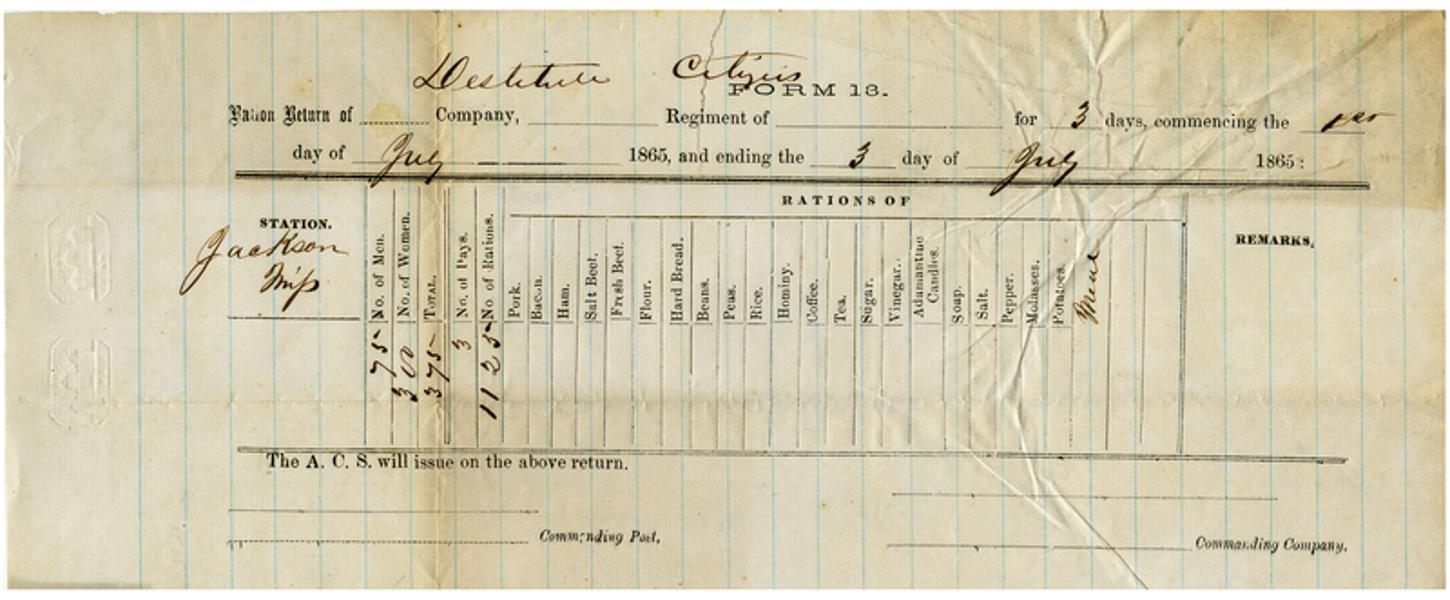 Destitute Citizens
FORM 13.
Ration Return of Company, Regiment of for 3 days, commencing the
day of July 1865, and ending the 3 day of July 1865:
RATIONS OF
STATION.
Jackson
Miss
No. of Men.
No. of Women.
TOTAL.
No. of Days.
No. of Rations.
Pork.
Bacon.
Ham.
Salt Beef.
Fresh Beef.
Flour.
Hard Bread.
Beans.
Peas.
Rice.
Hominy.
Coffee.
Tea.
Sugar.
Vinegar.
Adamantine Candles.
Soap.
Salt.
Pepper.
Molasses.
Potatoes.
REMARKS.
75 300 375 3 1125
The A. C. S. will issue on the above return.
Commanding Post.
Commanding Company.